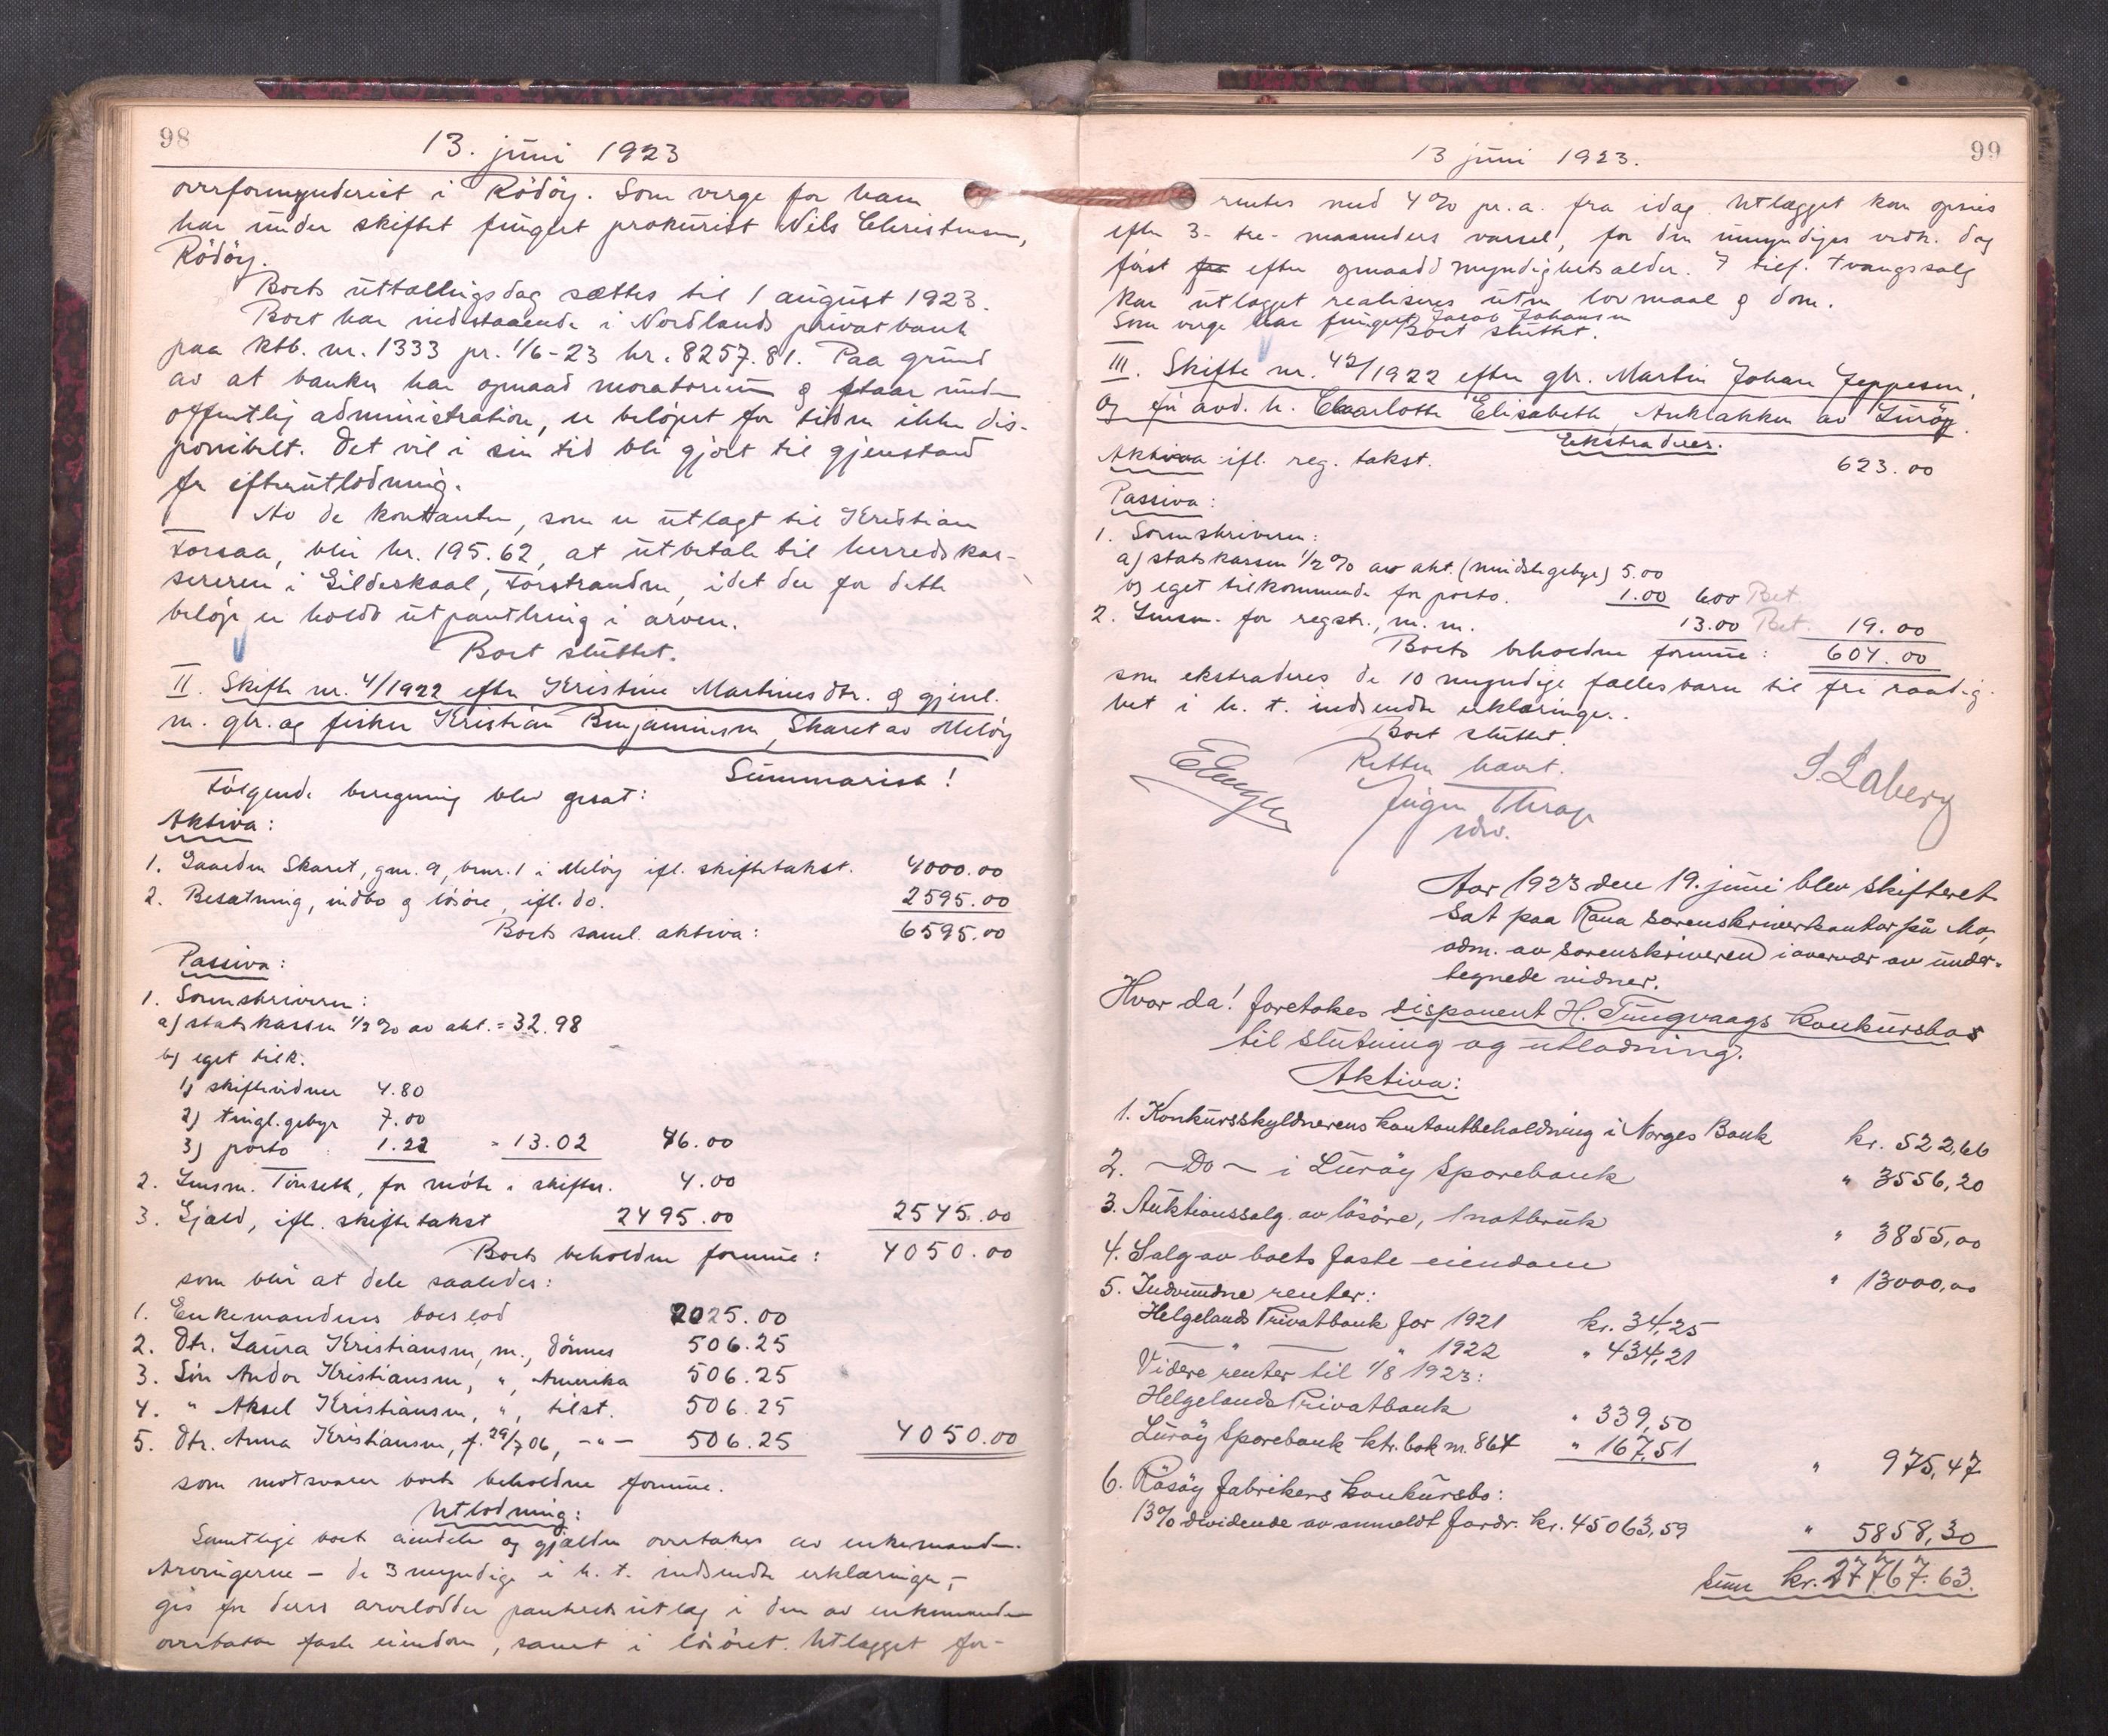 98
13. juni 1923
overformynderiet i Rödöy. Som verge for ham
har under skiftet fungert prokurist Nils Christensen,
Rödöy.
Boets uttællingsdag sættes til 1 august 1923.
Boet har indestaaende i Nordlands privatbank
paa ktb. nr. 1333 pr. 1/6-23 kr. 8257.81. Paa grund
av at banken har opnaad moratorium og staar under
offentlig administration, er beløpet for tiden ikke dis-
ponibelt. Det vil i sin tid bli gjort til gjenstand
for efterutlodning.
Av de kontanter, som er utlagt til Kristian
Forsaa, blir kr. 195.62 at utbetale til herredskas-
sereren i Gildeskaal, Forstranden, idet der for dette
beløp er holdt utpantning i arven.
Boet sluttet.
II. Skifte nr. 4/1922 efter Kristine Martinusdtr. og gjenl.
m. gbr. og fisker Kristian Benjaminsen, Skaret av Meløy
Summarisk!
Følgende beregning blev gjort:
Aktiva:
1. Gaarden Skaret, gnr. 9, brnr. 1 i Meløy ifl. skiftetakst. 4000.00
2. Besætning, indbo og løsøre, ifl. do. 2595.00
Boets saml. aktiva: 6595.00
Passiva:
1. Sorenskriveren:
a) statskassen 1/2% av akt. = 32.98
b) eget tilk.
1) skiftevidner 4.80
2) tingl. gebyr 7.00
3) porto 1.22 = 13.02 46.00
2. Lensm. Tønseth, for møte i skiften. 4.00
3. Gjæld, ifl. skiftetakst 2495.00 2545.00
Boets beholdne formue: 4050.00
som blir at dele saaledes:
1. Enkemandens boeslod 2025.00
2. Dtr. Laura Kristiansen, m., Dönnes 506.25
3. Søn Andor Kristiansen, " , Amerika 506.25
4. " Aksel Kristiansen, " , tilst. 506.25
5. Dtr. Anna Kristiansen, f. 29/7 06, -"- 506.25 4050.00
som motsvarer boets beholdne formue.
Utlodning:
Samtlige boets eiendele og gjælden overtakes av enkemanden.
Arvingerne - de 3 myndige i h. t. indsendte erklæringer, -
gis for deres arvelodder panterets utlæg i den av enkemanden
overtatte faste eiendom, samt i løsøret. Utlægget for-
99
13 juni 1923.
rentes med 4% pr. a. fra idag. Utlægget kan opsies
efter 3- tre- maaneders varsel, for den umyndiges vedk. dog
først efter opnaadd myndighetsalder. I tilf. tvangssalg
kan utlægget realiseres uten lovmaal og dom.
Som verge har fungert Jacob Johansen
Boet sluttet.
III. Skifte nr. 42/1922 efter gbr. Martin Johan Jeppesen,
og fù avd. h. Charlotte Elisabeth, Auklakken av Lurøy.
Ekstraderes.
Aktiva ifl. reg. takst. 623.00
Passiva:
1. Sorenskriveren:
a) statskassen 1/2% av akt. (mindstegebyr) 5.00
b) eget tilkommende for porto. 1.00 6.00 Bet.
2. Lensm. for regstr., m. m. 13.00 Bet. 19.00
Boets beholdne formue: 604.00
som ekstraderes de 10 myndige fællesbarn til fri raadig-
het i h. t. indsendte erklæringer.
Boet sluttet.
Retten hævet.
Jügen Thrap
sdv.
S. Laberg
Aar 1923 den 19. juni blev skifteret
sat paa Rana sorenskriverkontor på Mo,
adm. av sorenskriveren i overvær av under-
tegnede vidner.
Hvor da! foretokes disponent H. Tungvaags konkursbos
til slutning og utlodning.
Aktiva:
1. Konkursskyldnerens kontantbeholdning i Norges Bank kr. 522,66
2. -Do- i Lurøy Sparebank " 3556,20
3. Auktionssalg av løsøre, notbruk " 3855,00
4. Salg av boets faste eiendom " 13000,00
5. Indvundne renter:
Helgelands Privatbank for 1921 kr. 34,25
" " 1922 " 434,21
Videre renter til 1/8 1923:
Helgelands Privatbank " 339,50
Lurøy Sparebank ktr. bok nr. 864 " 167,51
" 975,47
6. Råsøy fabrikers konkursbo:
13% dividende av anmeldt fordr. kr. 45063,59 " 5858,30
Sum kr. 27767.63.